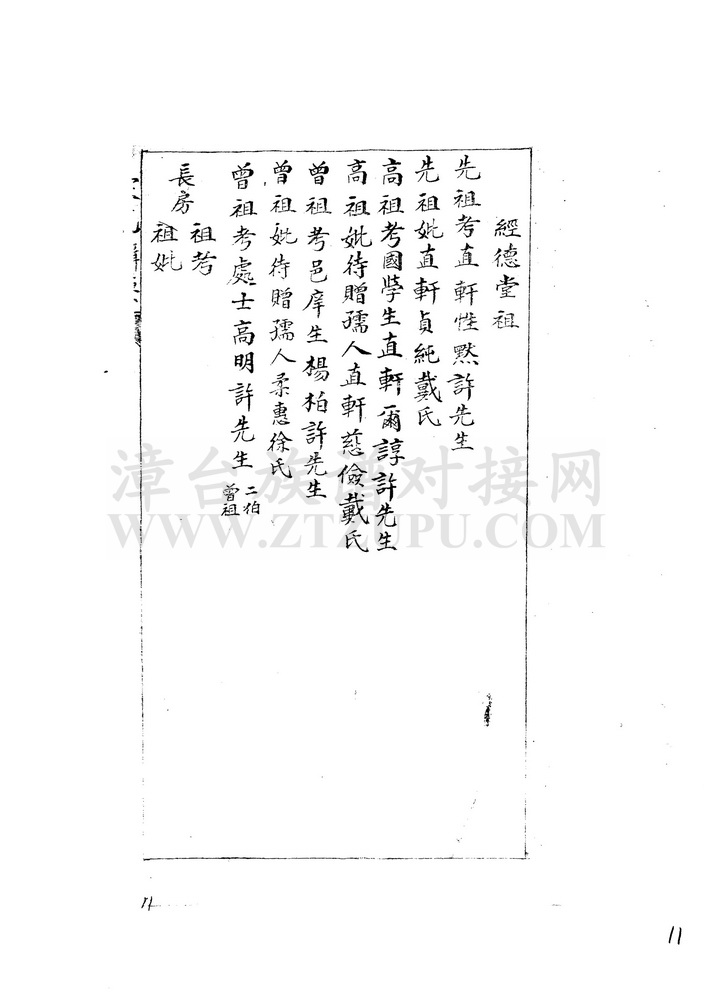 經德堂祖
先祖考直軒性默許先生
先祖妣直軒貞純戴氏
高祖考國學生直軒爾諄許先生
高祖妣待贈孺人直軒慈儉戴氏
曾祖考邑庠生楊柏許先生
曾祖妣待贈孺人柔惠徐氏
曾祖考處士高明許先生 二伯曾祖
長房
祖考
祖妣
漳台族谱对接网
WWW.ZTZUPU.COM
11
11